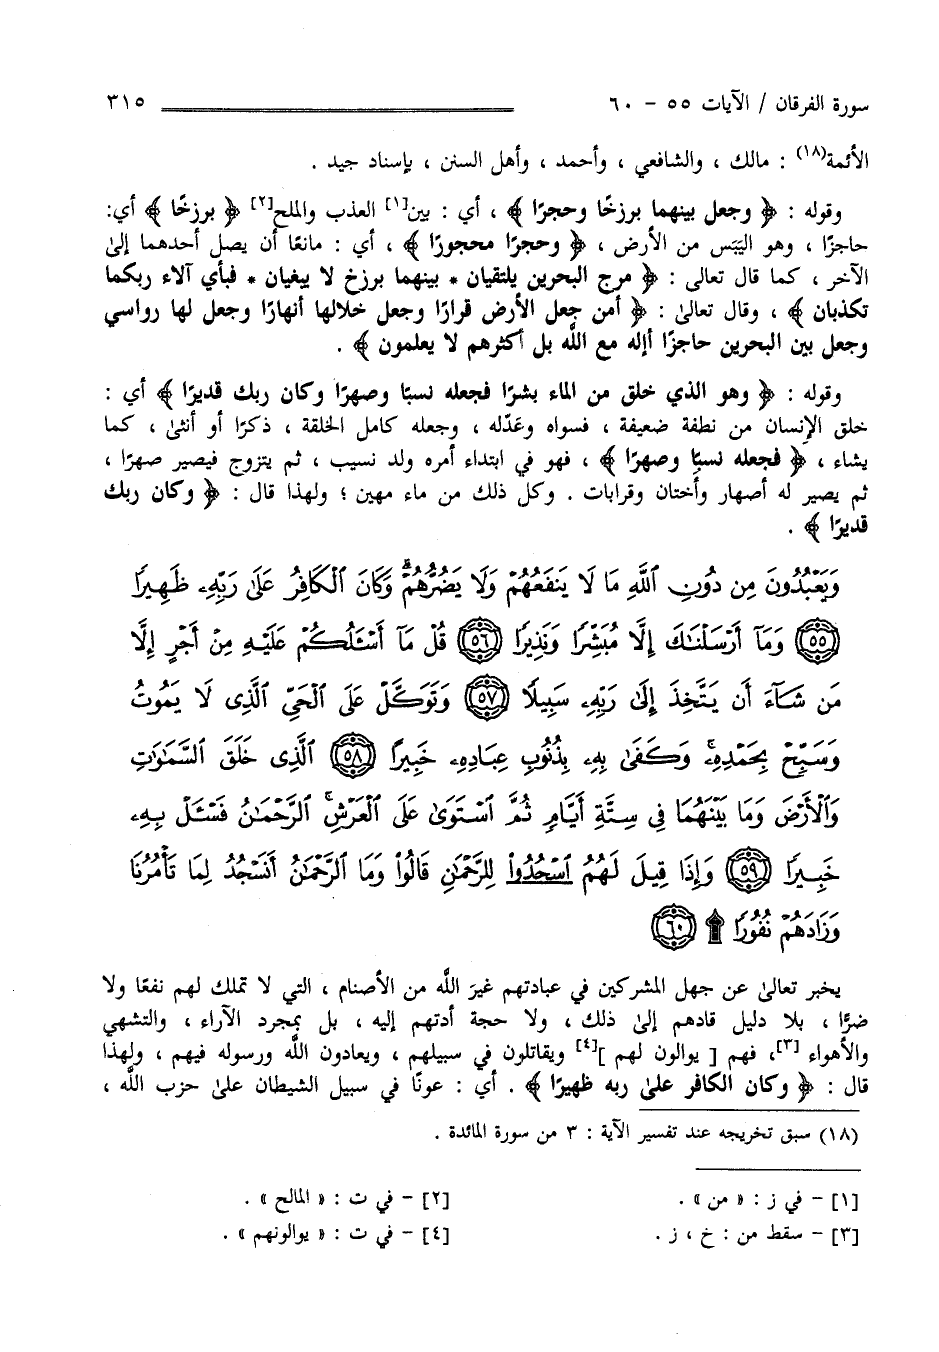 سورة الفرقان / الآيات ٥٥ - ٦٠ ٣١٥
الأئمة(١٨) : مالك ، والشافعي ، وأحمد ، وأهل السنن ، بإسناد جيد .
وقوله : ﴿ وجعل بينهما برزخًا وحجرًا ﴾ ، أي : بين[١] العذب والملح[٢] ﴿ برزخًا ﴾ أي:
حاجزًا ، وهو اليَبَس من الأرض ، ﴿ وحجرًا محجورًا ﴾ ، أي : مانعًا أن يصل أحدهما إلى
الآخر ، كما قال تعالى : ﴿ مرج البحرين يلتقيان * بينهما برزخ لا يبغيان * فبأي آلاء ربكما
تكذبان ﴾ ، وقال تعالىٰ : ﴿ أمن جعل الأرض قرارًا وجعل خلالها أنهارًا وجعل لها رواسي
وجعل بين البحرين حاجزًا أإله مع اللَّه بل أكثرهم لا يعلمون ﴾ .
وقوله : ﴿ وهو الذي خلق من الماء بشرًا فجعله نسبًا وصهرًا وكان ربك قديرًا ﴾ أي :
خلق الإنسان من نطفة ضعيفة ، فسواه وعَدّله ، وجعله كامل الخلقة ، ذكرًا أو أنثىٰ ، كما
يشاء ، ﴿ فجعله نسبًا وصهرًا ﴾ ، فهو في ابتداء أمره ولد نسيب ، ثم يتزوج فيصير صهرًا ،
ثم يصير له أصهار وأختان وقرابات . وكل ذلك من ماء مهين ؛ ولهذا قال : ﴿ وكان ربك
قديرًا ﴾ .
وَيَعْبُدُونَ مِن دُونِ ٱللَّهِ مَا لَا يَنفَعُهُمْ وَلَا يَضُرُّهُمْ ۗ وَكَانَ ٱلْكَافِرُ عَلَىٰ رَبِّهِۦ ظَهِيرًا
﴿٥٥﴾ وَمَآ أَرْسَلْنَٰكَ إِلَّا مُبَشِّرًا وَنَذِيرًا ﴿٥٦﴾ قُلْ مَآ أَسْـَٔلُكُمْ عَلَيْهِ مِنْ أَجْرٍ إِلَّا
مَن شَآءَ أَن يَتَّخِذَ إِلَىٰ رَبِّهِۦ سَبِيلًا ﴿٥٧﴾ وَتَوَكَّلْ عَلَى ٱلْحَيِّ ٱلَّذِى لَا يَمُوتُ
وَسَبِّحْ بِحَمْدِهِۦ ۚ وَكَفَىٰ بِهِۦ بِذُنُوبِ عِبَادِهِۦ خَبِيرًا ﴿٥٨﴾ ٱلَّذِى خَلَقَ ٱلسَّمَٰوَٰتِ
وَٱلْأَرْضَ وَمَا بَيْنَهُمَا فِى سِتَّةِ أَيَّامٍ ثُمَّ ٱسْتَوَىٰ عَلَى ٱلْعَرْشِ ۚ ٱلرَّحْمَٰنُ فَسْـَٔلْ بِهِۦ
خَبِيرًا ﴿٥٩﴾ وَإِذَا قِيلَ لَهُمُ ٱسْجُدُوا۟ لِلرَّحْمَٰنِ قَالُوا۟ وَمَا ٱلرَّحْمَٰنُ أَنَسْجُدُ لِمَا تَأْمُرُنَا
وَزَادَهُمْ نُفُورًا ۩ ﴿٦٠﴾
يخبر تعالىٰ عن جهل المشركين في عبادتهم غيرَ اللَّه من الأصنام ، التي لا تملك لهم نفعًا ولا
ضرًّا ، بلا دليل قادهم إلىٰ ذلك ، ولا حجة أدتهم إليه ، بل بمجرد الآراء ، والتشهي
والأهواء [٣]، فهم [ يوالون لهم ][٤] ويقاتلون في سبيلهم ، ويعادون اللَّه ورسوله فيهم ، ولهذا
قال : ﴿ وكان الكافر علىٰ ربه ظهيرًا ﴾ . أي : عونًا في سبيل الشيطان علىٰ حزب اللَّه ،
(١٨) سبق تخريجه عند تفسير الآية : ٣ من سورة المائدة .
[١] - في ز : « من » . [٢] - في ت : « المالح » .
[٣] - سقط من : خ ، ز . [٤] - في ت : « يوالونهم » .